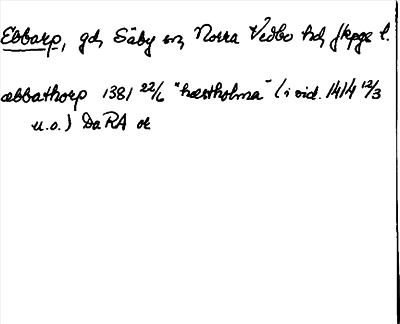 Ebbarp, gd, Säby sn, Norra Vedbo hd, Jkpgs l.
æbbathorp 1381 22/6 "hæstholma" (i vid. 1414 12/3
u.o.) DaRA or